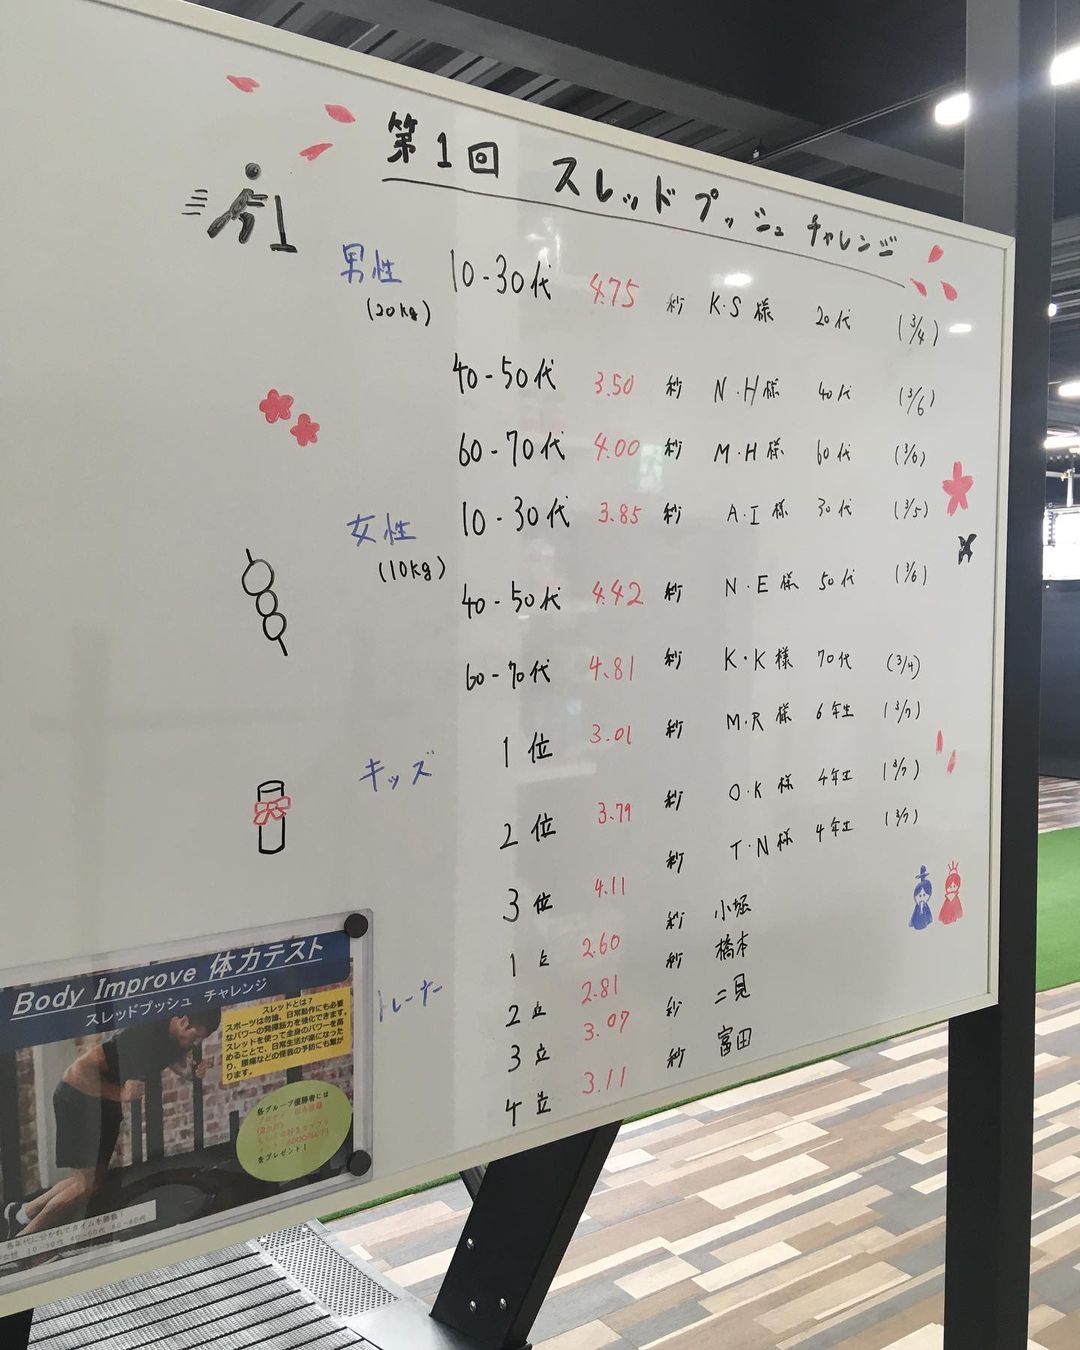 第1回 スレッド プッシュ チャレンジ
男性 10-30代 4.75 秒 K・S様 20代 (3/4)
(20kg)
40-50代 3.50 秒 N・H様 40代 (3/6)
60-70代 4.00 秒 M・H様 60代 (3/6)
女性 10-30代 3.85 秒 A・I様 30代 (3/5)
(10kg)
40-50代 4.42 秒 N・E様 50代 (3/6)
60-70代 4.81 秒 K・K様 70代 (3/4)
キッズ 1位 3.01 秒 M・R様 6年生 (3/7)
2位 3.79 秒 O・K様 4年生 (3/7)
3位 4.11 秒 T・N様 4年生 (3/7)
トレーナー 1位 2.60 秒 小堀
2位 2.81 秒 橋本
3位 3.07 秒 二見
4位 3.11 秒 富田
Body Improve 体力テスト
スレッドプッシュ チャレンジ
スレッドとは？
スポーツは勿論、日常動作にも必要
なパワーの発揮筋力を強化できます。
スレッドを使って全身のパワーを高
めることで、日常生活が楽になった
り、腰痛などの怪我の予防にも繋が
ります。
各グループ優勝者には
をプレゼント！
各年代に分かれてタイムを勝負！